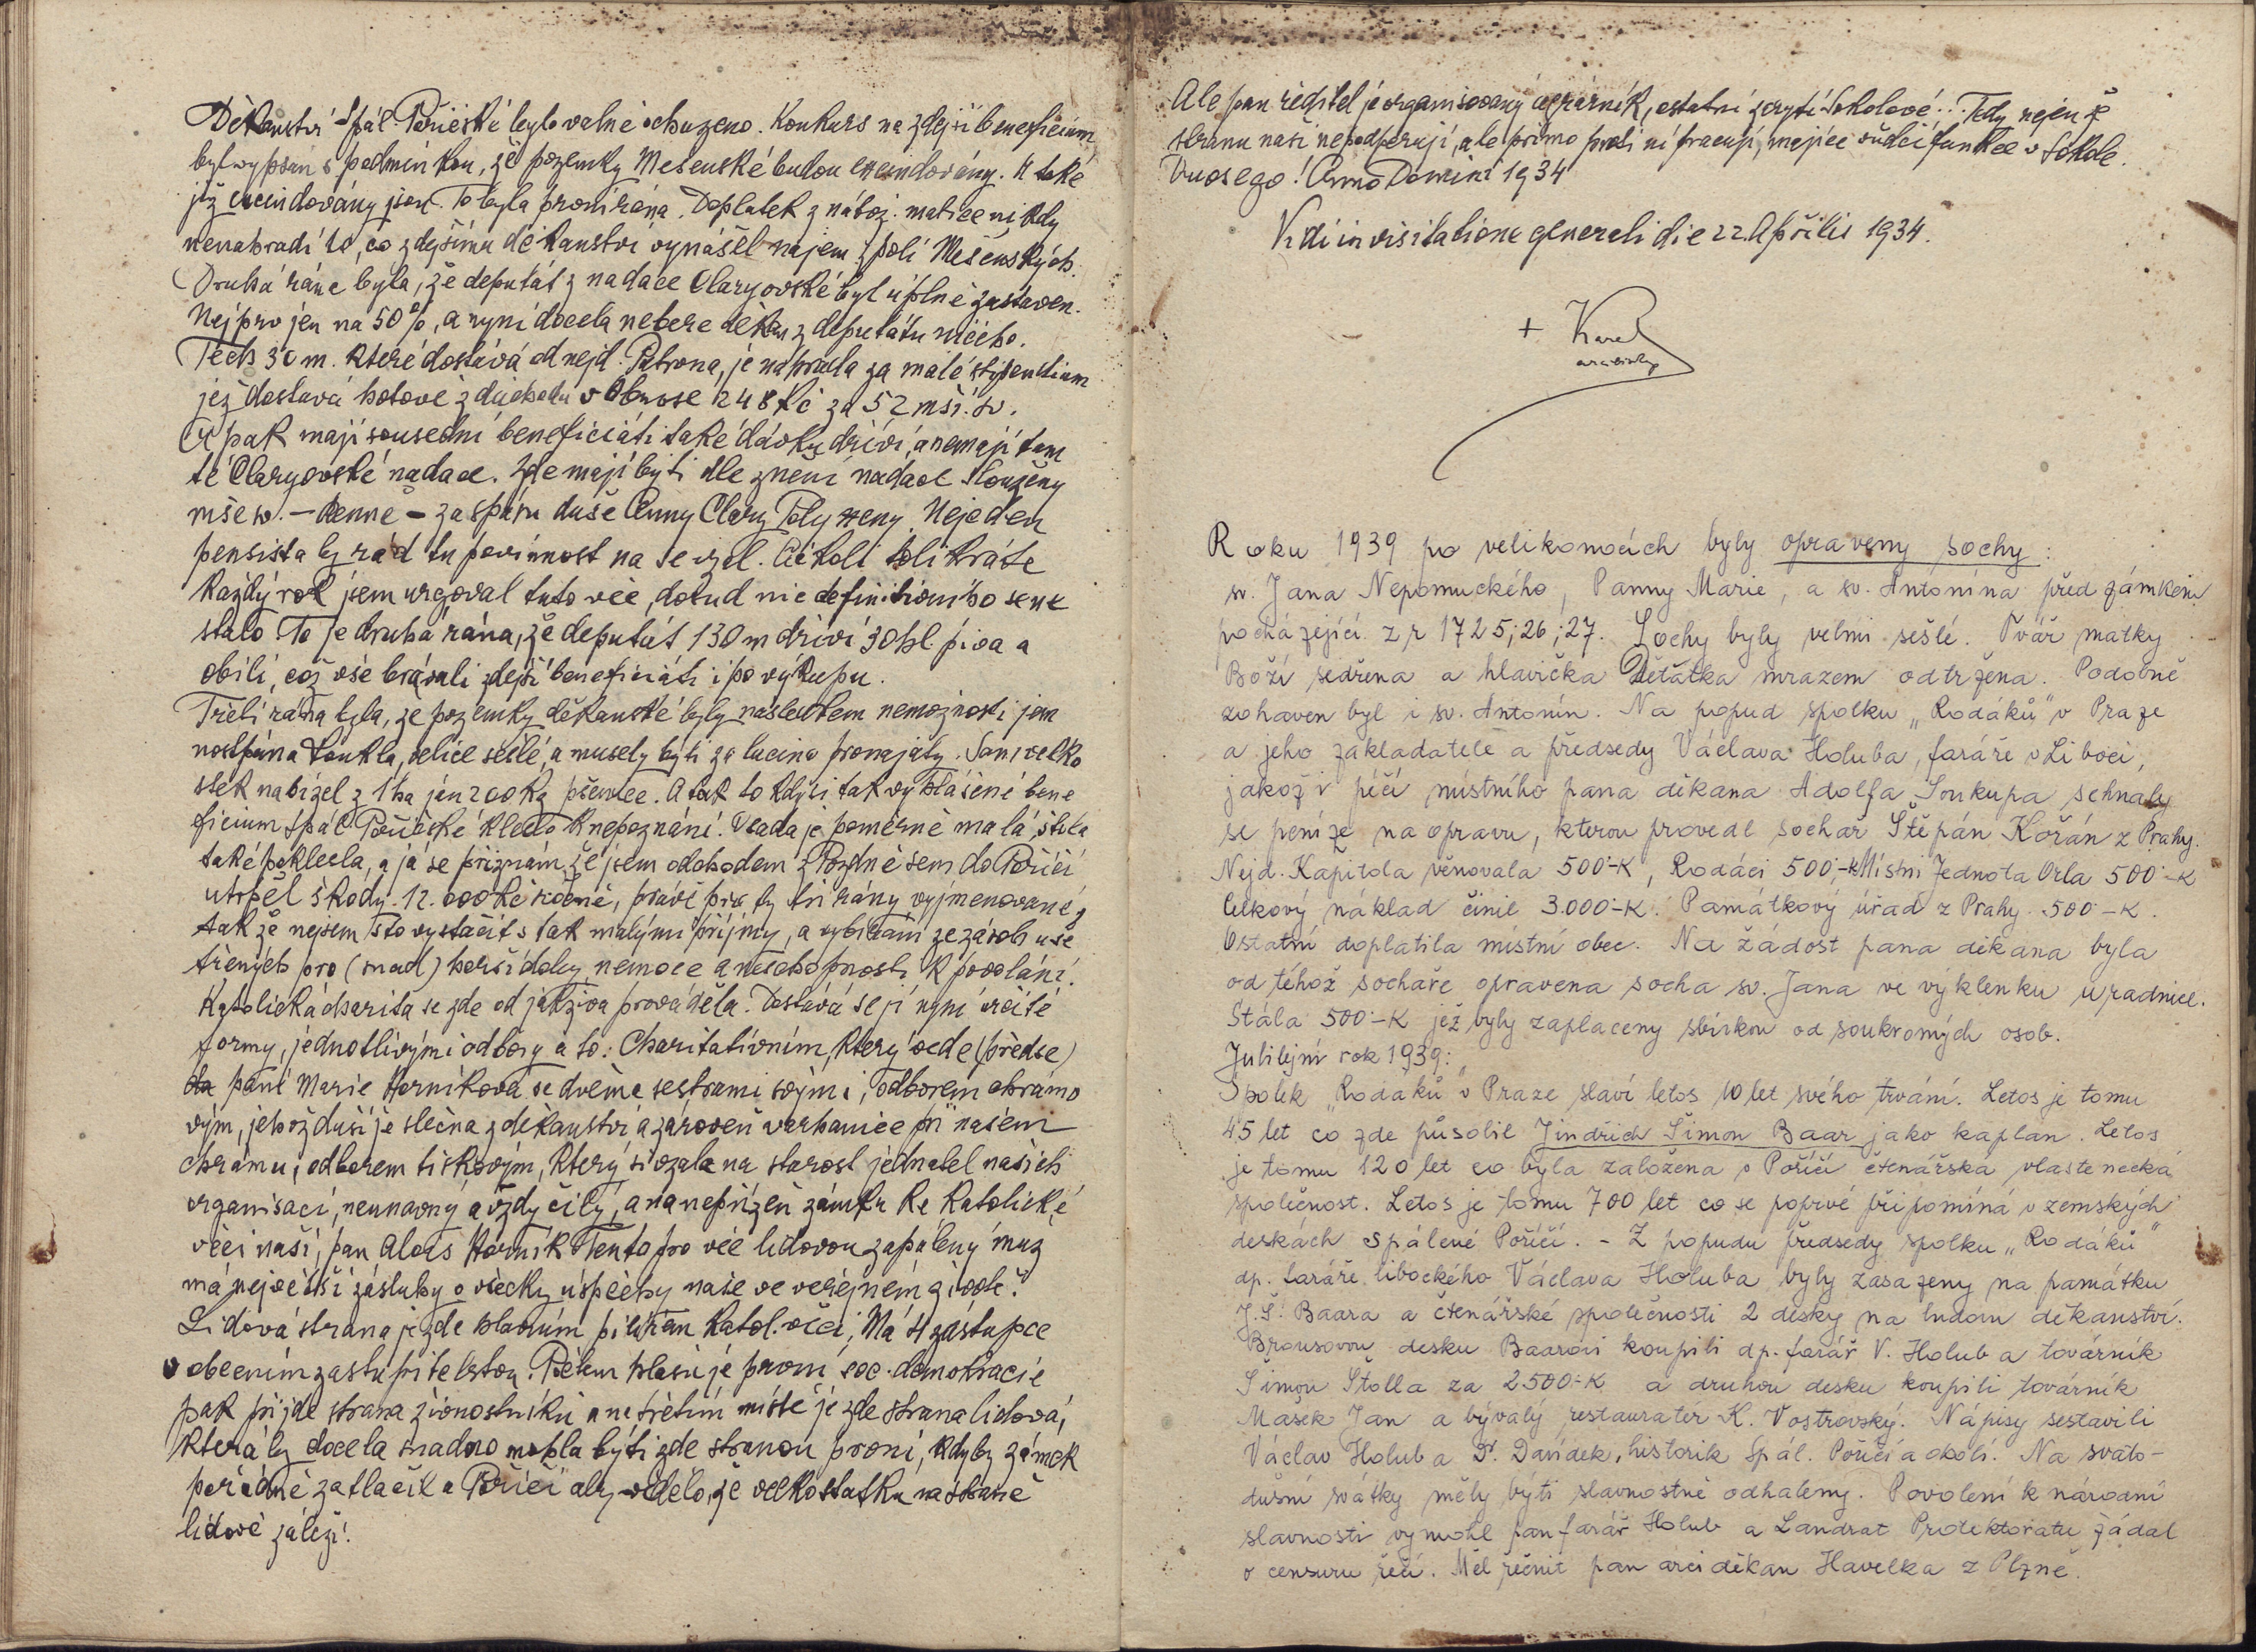 Děkanství Spál. Poříčské bylo valně ochuzeno. Konkurs na zdejší beneficium
byl vypsán s podmínkou, že pozemky Mešenské budou excindovány. A také
již excindovány jsou. To byla první rána. Doplatek z nábož. matice nikdy
nenahradí to, co zdejšímu děkanství vynášel nájem z polí Mešenských.
Druhá rána byla, že deputát z nadace Claryovské byl úplně zastaven.
Nejprv jen na 50%, a nyní docela nebere děkan z deputátu ničeho.
Těch 30 m. které dostává od nejd. Patrona, je náhrada za malé stipendium
jež dostává hotově z důchodu v obnose 248 Kč za 52 mší sv.
A pak mají sousední beneficiáti také dávku dříví, a nemají tam
té Claryovské nadace. Zde mají býti dle znění nadace slouženy
mše sv. – denně – za spásu duše Anny Clary Polyxeny. Nejeden
pensista by rád tu povinnost na se vzal. Ačkoli tolikráte
každý rok jsem urgoval tuto věc, dosud nic definitivního se ne
stalo. To je druhá rána, že deputát 130 m dříví 30 hl. piva a
obilí, což vše brávali zdejší beneficiáti i po výkupu.
Třetí rána byla, že pozemky děkanské byly následkem nemožnosti jem
nostpána Loukla, velice sešlé, a musely býti za lacino pronajaty. Sám velko
statek nabízel z 1 ha jen 200 kg pšenice. A tak to kdysi tak vyhlášené bene
ficium Spál. Poříčské kleslo k nepoznání. Osada je poměrně malá, štola
také poklesla, a já se přiznám, že jsem odchodem z Pozdně sem do Poříčí
utrpěl škody 12.000 Kč ročně, právě pro ty tři rány vyjmenované,
tak že nejsem s to vystačit s tak malými příjmy, a vybírám ze zásob uše
třených pro (snad) horší doby nemoce a neschopnosti k povolání.
Katolická charita se zde od jakživa prováděla. Dostává se jí nyní určité
formy, jednotlivými odbory a to: Charitativním, který vede (předse)
da paní Marie Horníková se dvěma sestrami svými, odborem chrámo
vým, jehož duší je slečna z děkanství a zároveň varhanice při našem
chrámu, odborem tiskovým, který si vzala na starost jednatel našich
organisací, neunavný a vždy čilý, a na nepřízeň zámku ke katolické
věci naší, pan Alois Horník. Tento pro věc lidovou zapálený muž
má největší zásluhy o všecky úspěchy naše ve veřejném životě.
Lidová strana je zde hlavním pilířem katol. věci, Má 4 zástupce
v obecním zastupitelstvu. Počtem hlasů je první soc. demokracie
pak přijde strana živnostníků a na třetím místě je zde strana lidová,
která by docela snadno mohla býti zde stranou první, kdyby zámek
pořádně zatlačil a Poříčí aby vědělo, že velkostatku na straně
lidové záleží!
Ale pan ředitel je organisovaný agrárník, ostatní skrytí Sokolové! Tedy nejen že
stranu naši nepodporují, ale přímo proti ní pracují, majíce vůdčí funkce v Sokole.
Quos ego! Anno Domini 1934
Vidi in visitatione generali die 22. Aprilis 1934.
+ Karel
arcibiskup
Roku 1939 po velikonocích byly opraveny sochy:
sv. Jana Nepomuckého, Panny Marie, a sv. Antonína před zámkem
pocházející z r 1725; 26; 27. Sochy byly velmi sešlé. Tvář matky
Boží sedřena a hlavička Děťátka mrazem odtržena. Podobně
zohaven byl i sv. Antonín. Na popud spolku „Rodáků" v Praze
a jeho zakladatele a předsedy Václava Holuba, faráře v Liboci,
jakož i péčí místního pana děkana Adolfa Soukupa sehnaly
se peníze na opravu, kterou provedl sochař Štěpán Kořán z Prahy.
Nejd. Kapitola věnovala 500·-K, Rodáci 500,-K Místní Jednota Orla 500·-K
Celkový náklad činil 3.000·-K. Památkový úřad z Prahy 500·-K.
Ostatní doplatila místní obec. Na žádost pana děkana byla
od téhož sochaře opravena socha sv. Jana ve výklenku u radnice.
Stála 500·-K jež byly zaplaceny sbírkou od soukromých osob.
Jubilejní rok 1939:
Spolek „Rodáků" v Praze slaví letos 10 let svého trvání. Letos je tomu
45 let co zde působil Jindřich Šimon Baar jako kaplan. Letos
je tomu 120 let co byla založena v Poříčí čtenářská vlastenecká
společnost. Letos je tomu 700 let co se poprvé připomíná v zemských
deskách Spálené Poříčí. – Z popudu předsedy spolku „Rodáků"
dp. faráře libockého Václava Holuba byly zasazeny na památku
J. Š. Baara a čtenářské společnosti 2 desky na budovu děkanství.
Bronsovou desku Baarovi koupili dp. farář V. Holub a továrník
Šimon Štolla za 2500·-K a druhou desku koupili továrník
Mašek Jan a bývalý restauratér K. Vostrovský. Nápisy sestavili
Václav Holub a Dr. Davídek, historik Spál. Poříčí a okolí. Na svato-
dušní svátky měly býti slavnostně odhaleny. Povolení k národní
slavnosti vymohl pan farář Holub a Landrat Protektorátu žádal
o censuru řečí. Měl řečnit pan arciděkan Havelka z Plzně.